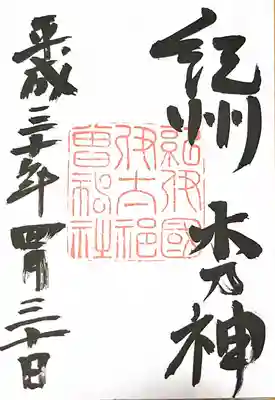 紀州 木乃神
紀伊國
伊太祁
曾神社
平成三十年 四月三十日